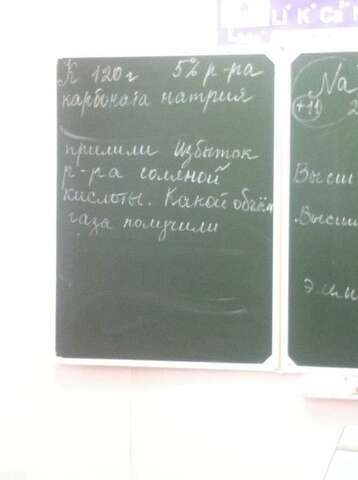 Li K Ca
К 120 г 5% р-ра
карбоната натрия
прилили избыток
р-ра соляной
кислоты. Какой объём
газа получили
Na
+11
Высш
Высш